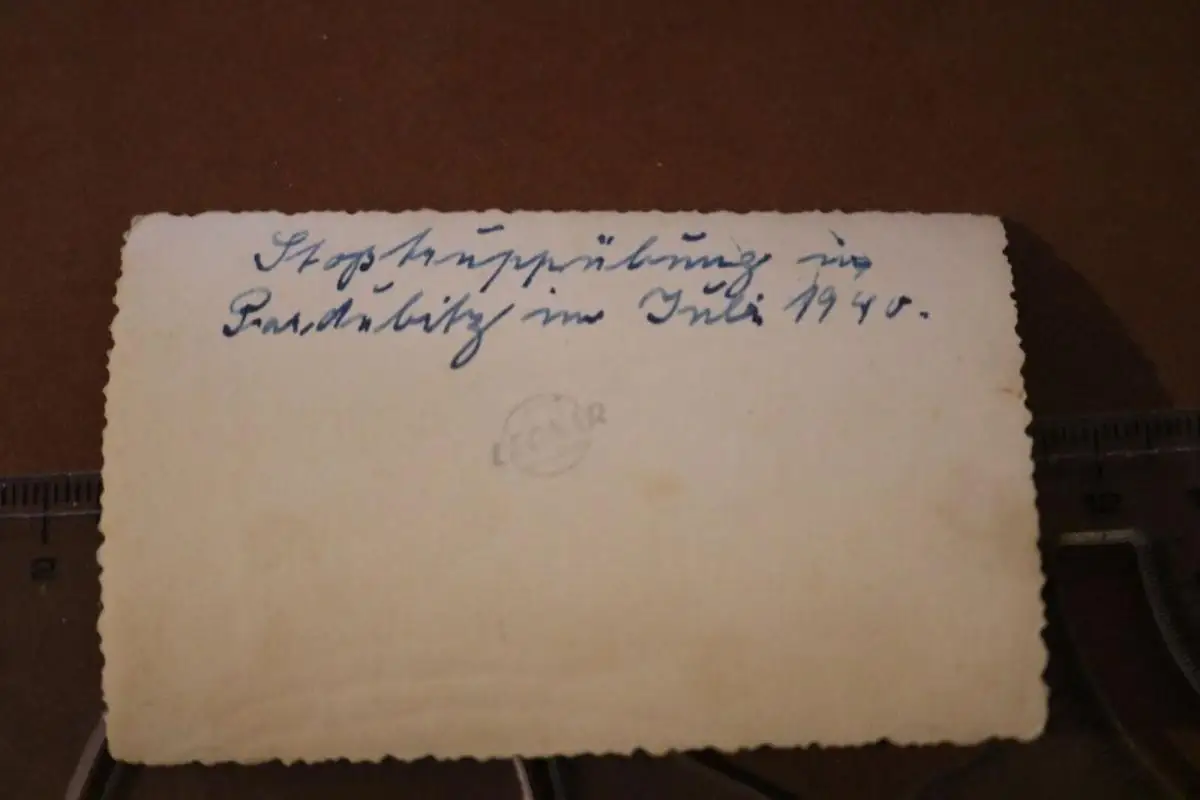 Stoßtruppübung in
Pardubitz im Juli 1940.
LEONAR
0
10